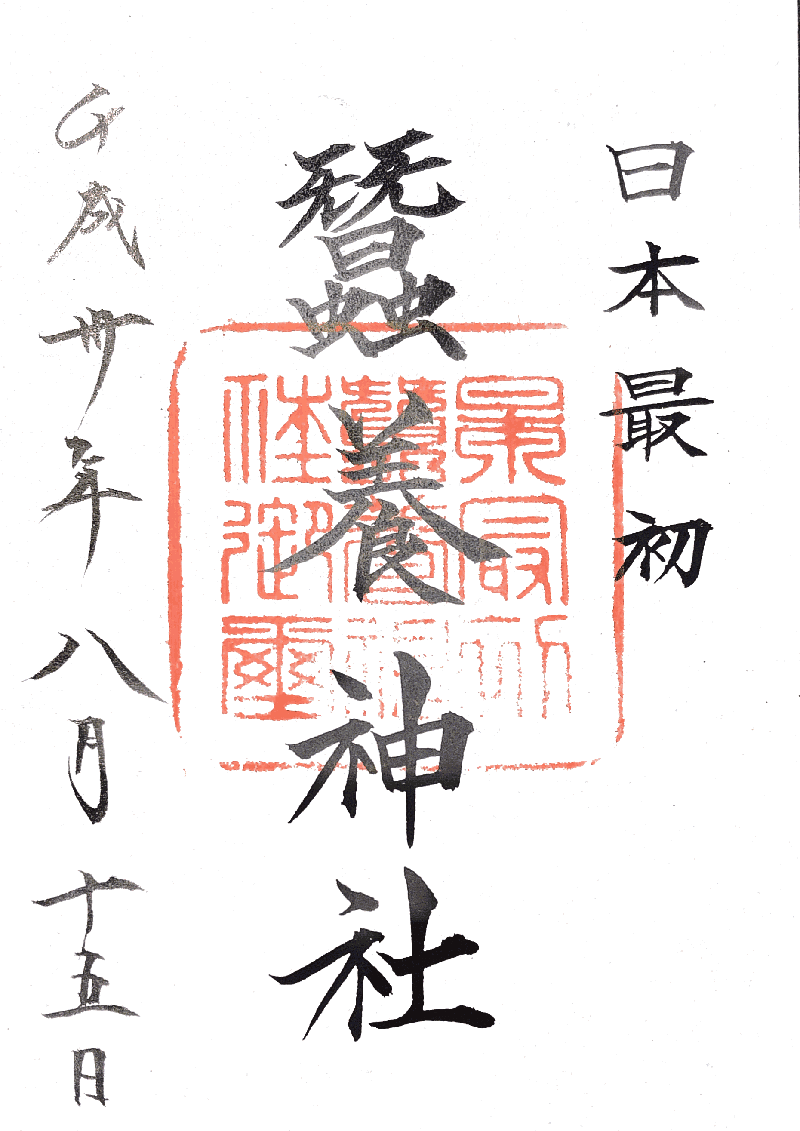 日本最初
蠶養神社
平成卅年八月十五日